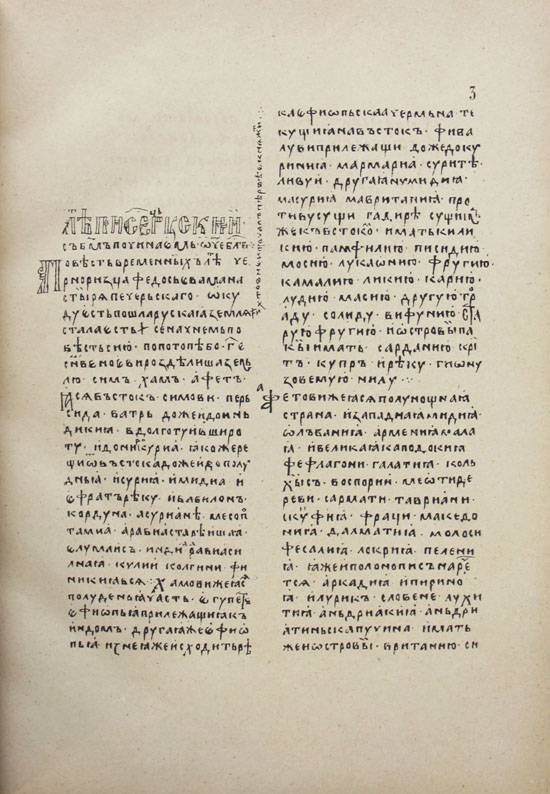 3
ЛѢТОПИСЕЦЪ РꙊСКИІ·
СЪ Б҃МЪ ПОЧИНАЕМЪ· Ѿ҃ЧЕ БЛГ҃ВИ·
ПОВѢСТЬ ВРЕМЕННЫХ ЛѢТ ЧЕ
РНОРИЗЦА ФЕДОСЬЕВА МАНА
СТЫРѦ ПЕЧЕРЬСКАГО· ѠКУ
ДУ ЕСТЬ ПОШЛА РУСКАꙖ ЗЕМЛѦ
СТАЛА ЕСТЬ· СЕ НАЧНЕМЪ ПО
ВѢСТЬ СИЮ· ПО ПОТОПѢ БО· Г҃· Е
СНВЕ НОЕВИ РОЗДѢЛИША ЗЕМ
ЛЮ· СИМЪ· ХАМЪ· АФЕТЪ·
ꙖСѦ ВЪСТОК СИМОВИ· ПЕРЬ
СИДА· ВАТРЬ ДОЖЕ И ДО ИНЬ
ДИКИꙖ· В ДОЛГОТУ И В ШИРО
ТУ·
ЩИ Ѡ ВЪСТОКА ДОЖЕ И ДО ПОЛУ
ДНЬꙖ· И СУРИꙖ· И МИДИꙖ· И
ЕФРАТ РѢКУ· И ВАВИЛОНЪ·
КОРДУНА· АСУРИꙖНѢ· МЕСОП
ТАМИꙖ· АРАВИꙖ СТАРѢИШАꙖ·
ЕЛУМАИСЪ· ИНДИ· РАВИꙖ СИ
ЛНАꙖ· КУЛИИ· КОЛГИНИ· ФИ
НИКИꙖ ВСѦ· ХАМОВИ ЖЕ ꙖСѦ
ПОЛУДЕНЬꙖ ЧАСТЬ· ЕГУПЕТЪ
ЕФИѠПЬꙖ ПРИЛЕЖАЩИꙖ К
ИНДОМЪ· ДРУГАꙖ ЖЕ ЕФИѠ
ПЬꙖ ИЗ НЕꙖЖЕ ИСХОДИТЬ РѢ
КА ЕФИѠПЬСКАꙖ ЧЕРМЬНА· ТЕ
КУЩИꙖ НА ВЪСТОК· ФИВА
ЛУВИ ПРИЛЕЖАЩИ· ДОЖЕ ДО КУ
РИНИꙖ· МАРМАРИꙖ· СУРИТѢ·
ЛИВУИ· ДРУГАꙖ НУМИДИꙖ·
МАСУРИꙖ· МАВРИТАНИꙖ· ПРО
ТИВУ СУЩИ ГАДИРѢ· СУЩИМ
ЖЕ К ВЪСТОКО· ИМАТЬ КИЛИ
КИЮ· ПАМФИЛИЮ· ПИСИДИЮ
МОСИЮ· ЛУКАѠНИЮ· ФРУГИЮ·
КАМАЛИЮ· ЛИКИЮ· КАРИЮ·
ЛУДИЮ· МАСИЮ· ДРУГУЮ ТРО
АДУ· СОЛИДУ· ВИФУНИЮ· СТА
РУЮ ФРУГИЮ· И ѠСТРОВЫ ПА
КЫ ИМАТЬ· САРДАНИЮ· КРИ
Т· КУПРЪ· И РѢКУ· ГИѠНУ
ЗОВЕМУЮ НИЛУ·
АФЕТОВИ ЖЕ ꙖСѦ ПОЛУНОЩНАꙖ
СТРАНА· И ЗАПАДНАꙖ· МИДИꙖ·
ѠЛЪВАНИꙖ· АРМЕНИꙖ МАЛА
Ꙗ И ВЕЛИКАꙖ· КАПОДОКИꙖ·
ФЕФЛАГОНИ· ГАЛАТИꙖ· КОЛЬ
ХЫСЪ· ВОСПОРИИ· МЕѠТИ· ДЕ
РЕВИ· САРМАТИ· ТАВРИАНИ·
СКУФИꙖ· ФРАЦИ· МАКЕДО
НИꙖ· ДАЛМАТИꙖ· МОЛОСИ
ФЕСАЛИꙖ· ЛОКРИꙖ· ПЕЛЕНИ
Ꙗ· ꙖЖЕ И ПОЛОПОНИСЪ НАРЕ
ТСѦ· АРКАДИꙖ· ИПИРИНО
Ꙗ· ИЛУРИК· СЛОВЕНЕ· ЛУХИ
ТИꙖ· АНЬДРИАКИꙖ· АНЬДРИ
АТИНЬСКА ПУЧИНА· ИМАТЬ
ЖЕ И ѠСТРОВЫ· БРИТАНИЮ· СИ